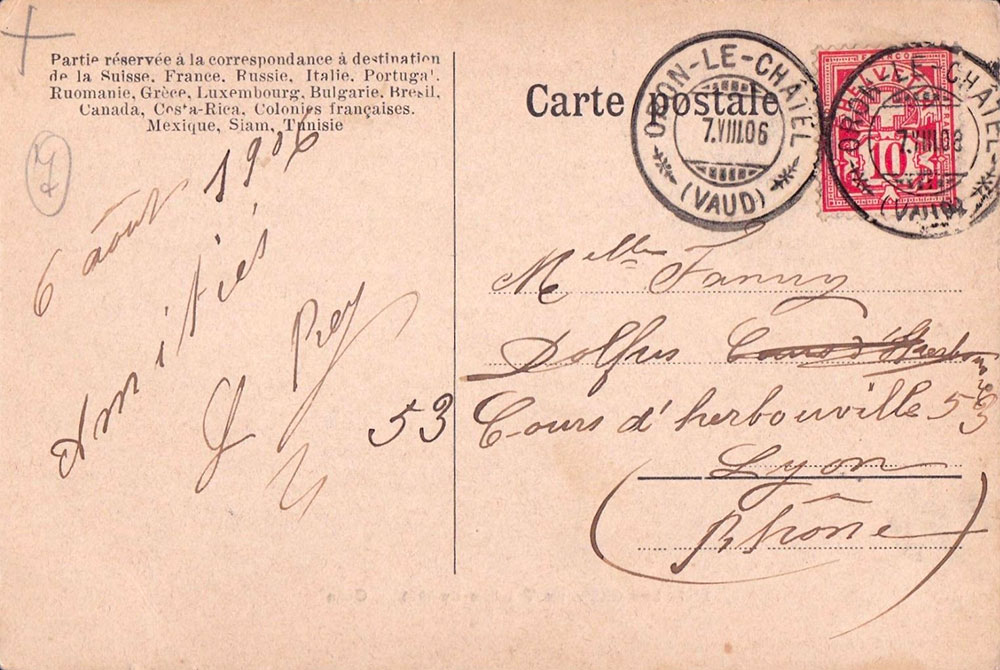 Partie réservée à la correspondance à destination
de la Suisse, France, Russie, Italie, Portugal,
Roumanie, Grèce, Luxembourg, Bulgarie, Bresil,
Canada, Costa-Rica, Colonies françaises.
Mexique, Siam, Tunisie
7
6 août 1906
Amitiés
Rey
53
Carte postale
ORON-LE-CHATEL
7.VIII.06
(VAUD)
ORON-LE-CHATEL
7.VIII.06
(VAUD)
FRANCO
10
Melle Fanny
Dolfus
Cours d'herbouville 53
Lyon
(Rhône)